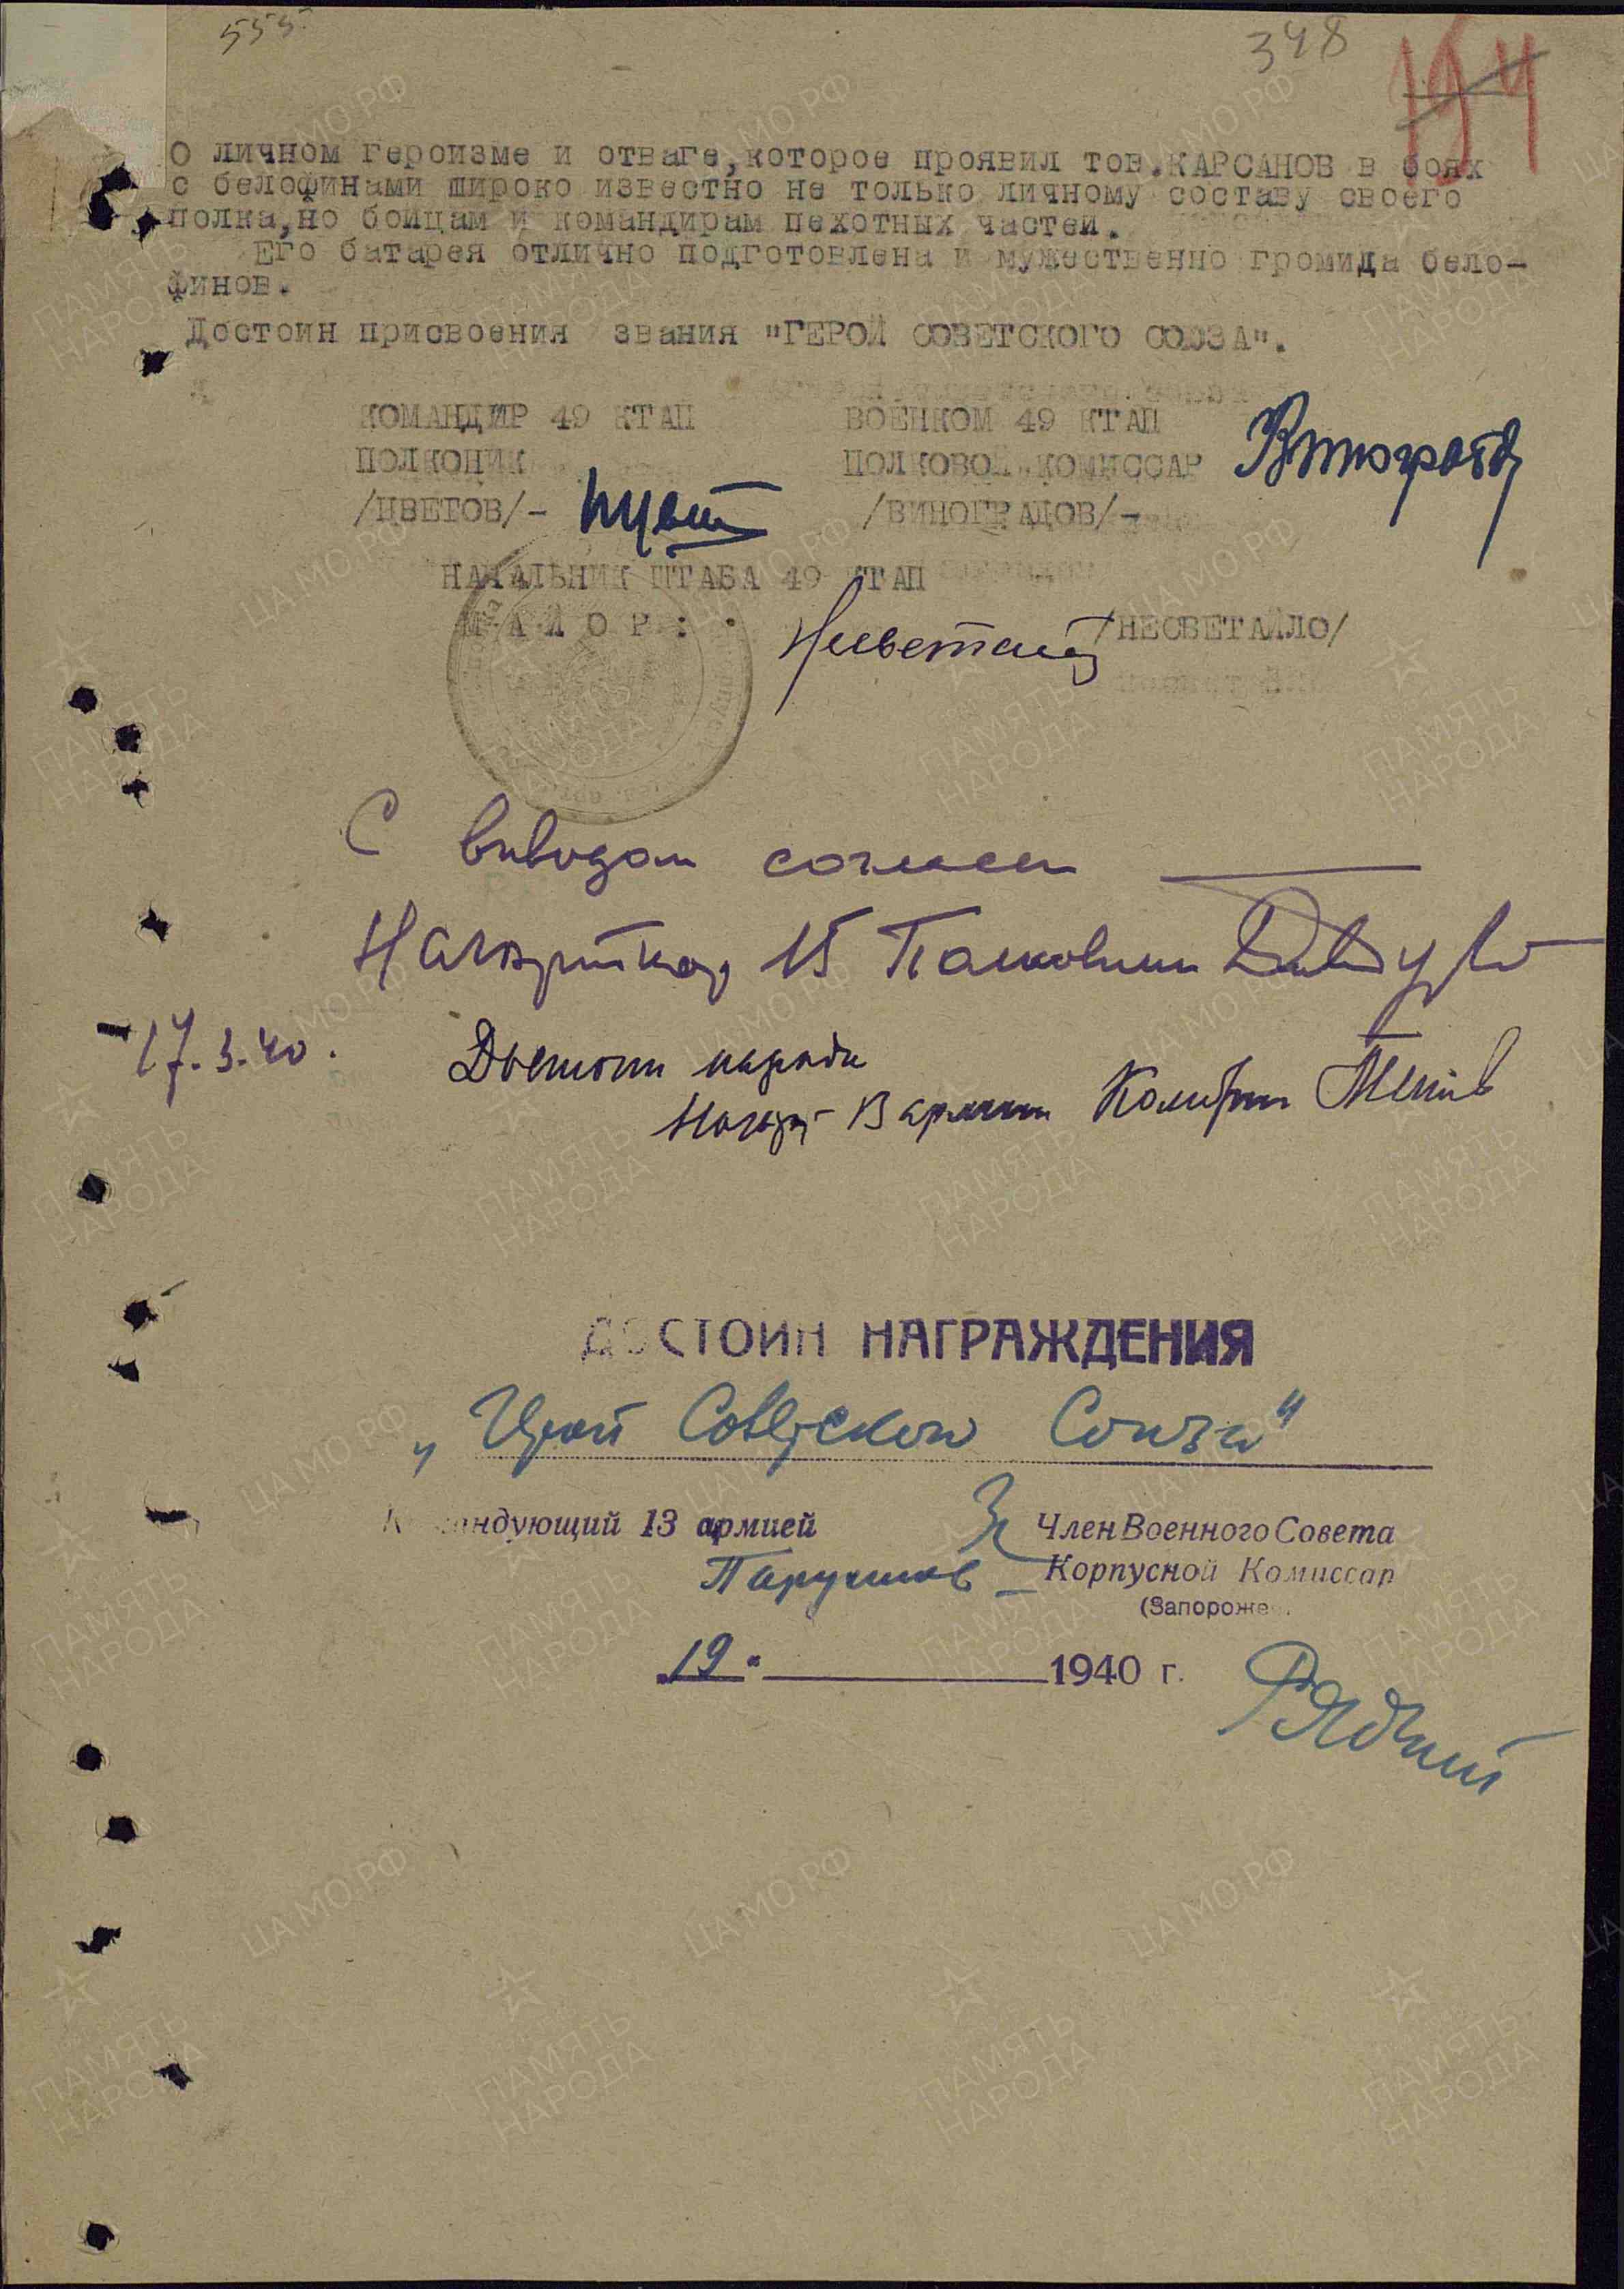 555
348
194
О личном героизме и отваге,которое проявил тов.КАРСАНОВ в боях
с белофинами широко известно не только личному составу своего
полка,но бойцам и командирам пехотных частей.
Его батарея отлично подготовлена и мужественно громида бело-
финов.
Достоин присвоения звания "ГЕРОЙ СОВЕТСКОГО СОЮЗА".
КОМАНДИР 49 КТАП ВОЕНКОМ 49 КТАП
ПОЛКОНИК ПОЛКОВОЙ КОМИССАР
/ЦВЕТОВ/- /ВИНОГРАДОВ/-
НАЧАЛЬНИК ШТАБА 49 КТАП
МАЙОР: /НЕСВЕТАЙЛО/
С выводом согласен
Начарткор 15 Полковник
17.3.40.
Достоин награды
13 армии Комбриг
ДОСТОИН НАГРАЖДЕНИЯ
„Герой Советского Союза"
Командующий 13 армией Член Военного Совета
Корпусной Комиссар
(Запорожец)
"19" 1940 г.
ЦА МО РФ
ПАМЯТЬ НАРОДА